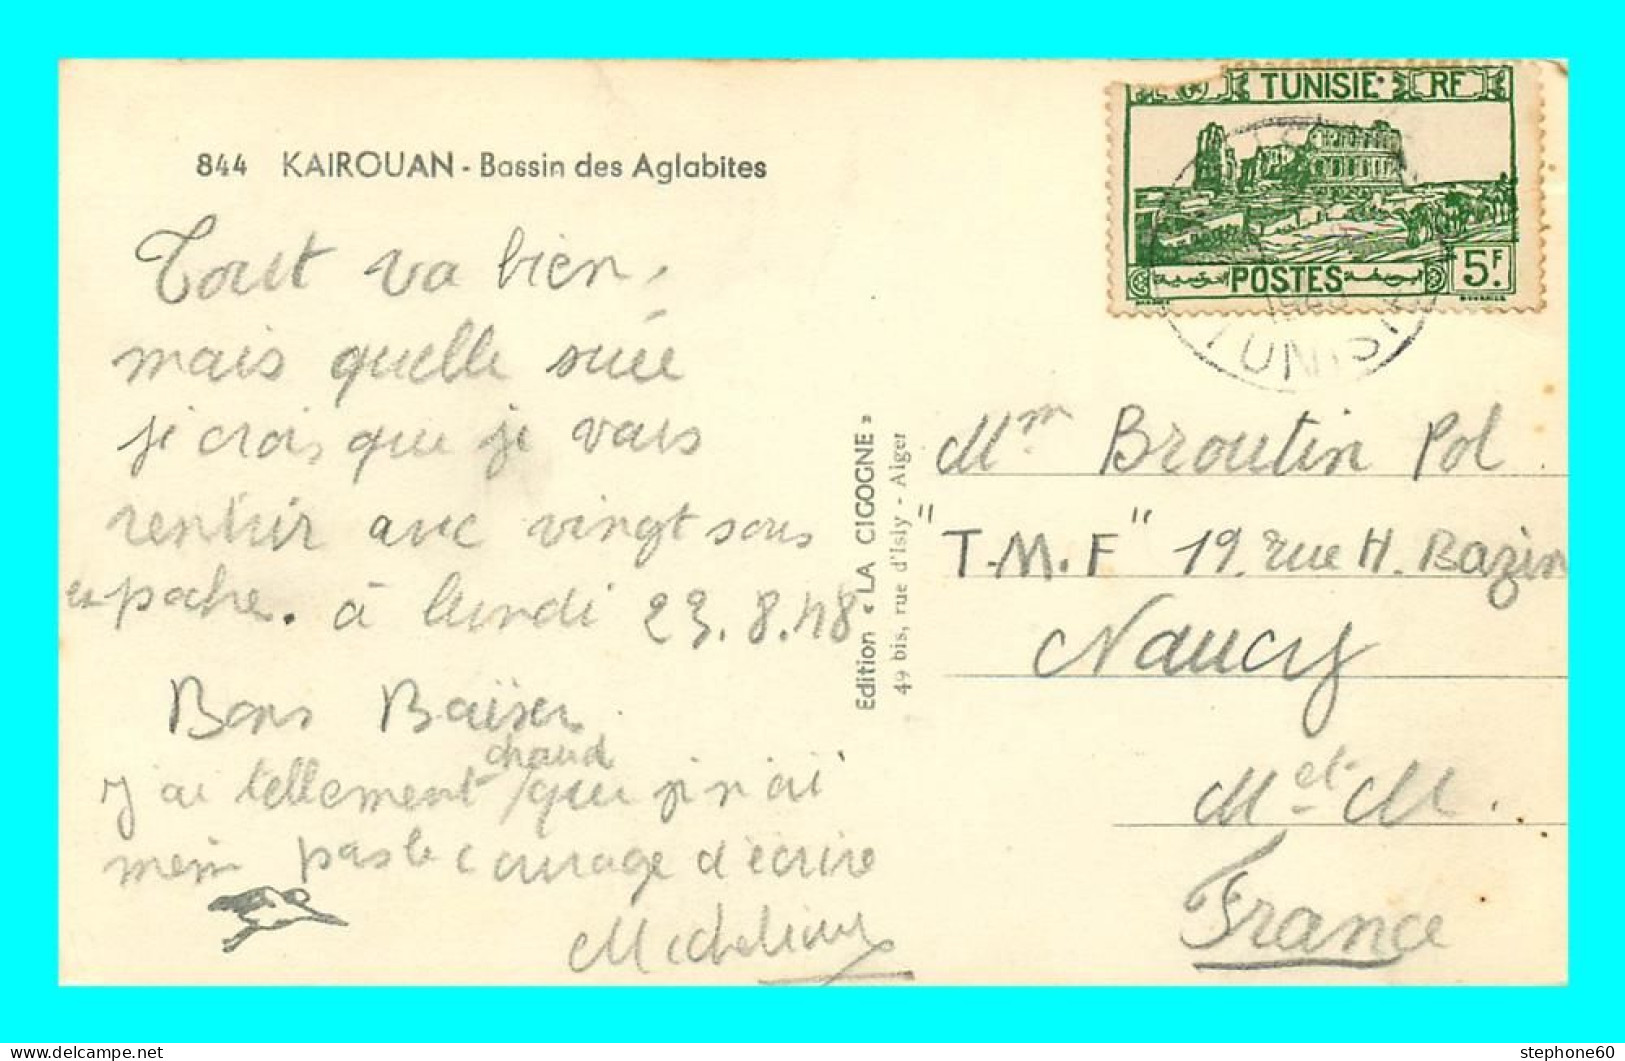 844 KAIROUAN - Bassin des Aglabites
Tout va bien,
mais quelle suée
je crois que je vais
rentrir avec vingt sous
en poche. à lundi 23.8.48
Bons Baisers
chaud
J'ai tellement / que je n'ai
mem pas le courage d'écrire
Edition « LA CIGOGNE »
49 bis, rue d'Isly - Alger
TUNISIE RF
POSTES
5F.
TUNISIE
Mm Broutin Pol
"T.M.F" 19. rue H. Bazin
Nancy
M et M.
France
stephone60